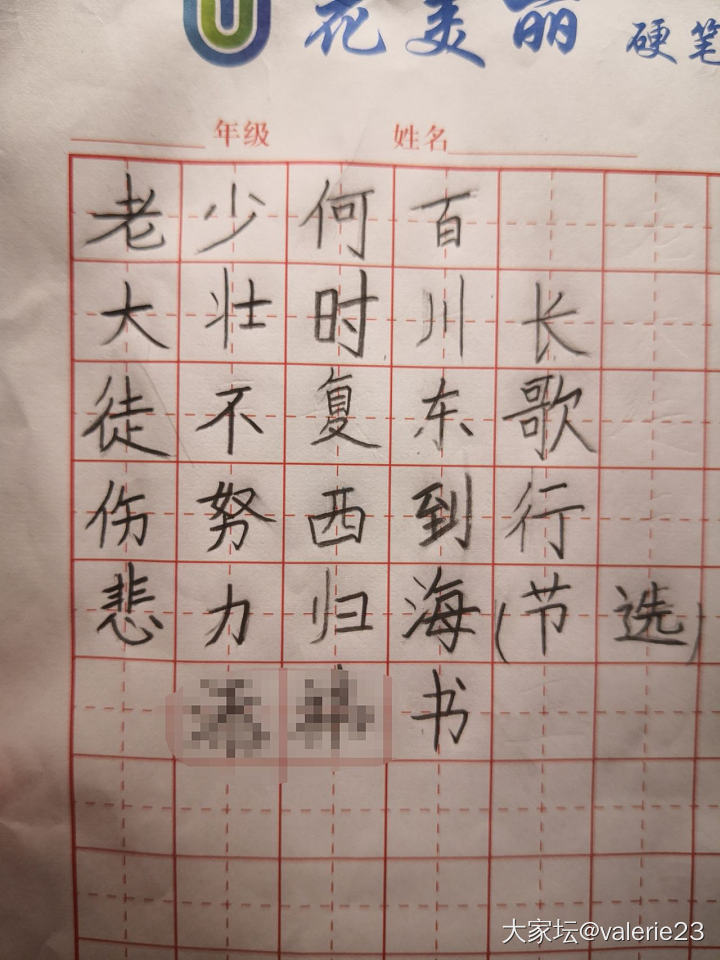 花美丽 硬笔
年级 姓名
长歌行(节选)
百川东到海
何时复西归
少壮不努力
老大徒伤悲
书
大家坛@valerie23